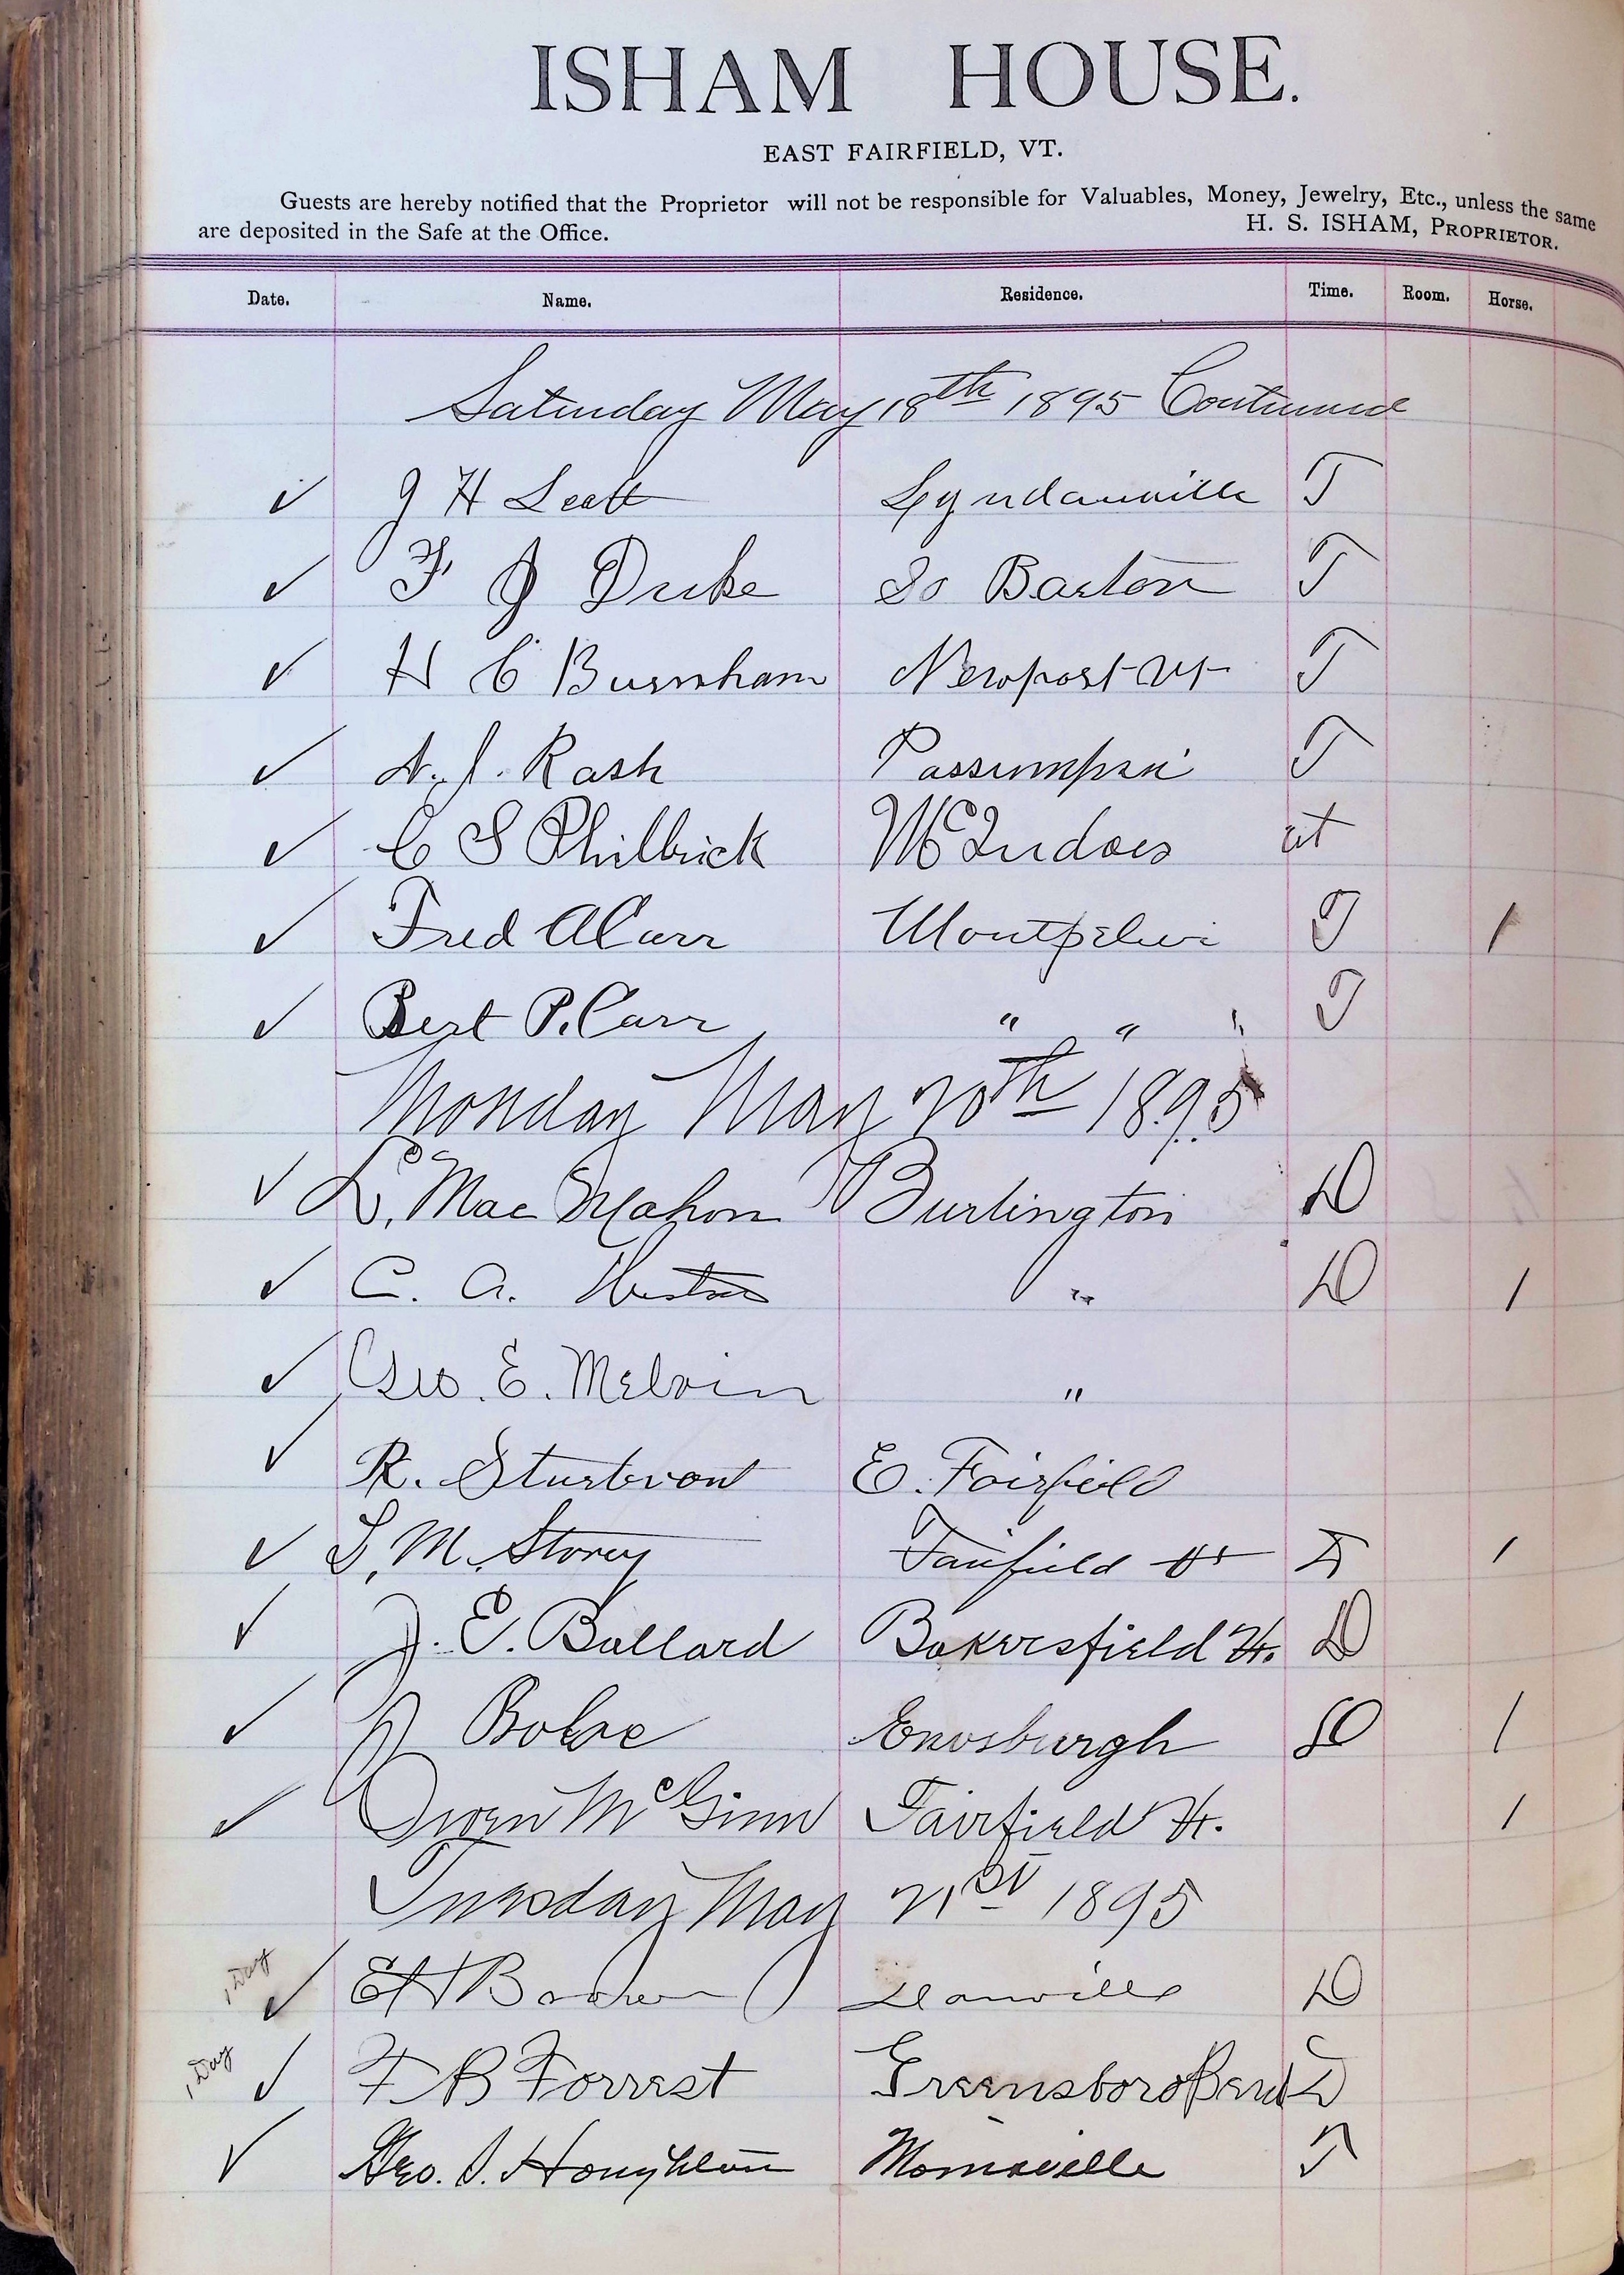 ISHAM HOUSE.
EAST FAIRFIELD, VT.
Guests are hereby notified that the Proprietor will not be responsible for Valuables, Money, Jewelry, Etc., unless the same
are deposited in the Safe at the Office. H. S. ISHAM, PROPRIETOR.
Date. Name. Residence. Time. Room. Horse.
Saturday May 18th 1895 Continued
✓ J H Scott Lyndonville T
✓ F J Drake So Barton T
✓ H C Burnham Newport Vt T
✓ N. J. Rash Passumpsic T
✓ C S Philbrick McIndoes
✓ Fred A Carr Montpelier T 1
✓ Bert P. Carr " " " T
Monday May 20th 1895
✓ L. MacMahon Burlington D
✓ C. A. " D 1
✓ Geo. E. Melvin "
✓ R. Sturtevant E. Fairfield
✓ S. M. Storey Fairfield Vt 1
✓ J. E. Ballard Bakersfield Vt. D
✓ J Enosburgh 1
✓ Owen McGinn Fairfield Vt. 1
Tuesday May 21st 1895
1 Day ✓ E H Danville D
1 Day ✓ F B Forrest Greensboro Bend
✓ Geo. S. Houghton Morrisville T